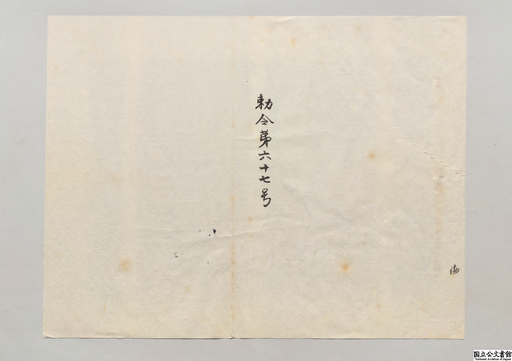 勅令第六十七号
国立公文書館
National Archives of Japan